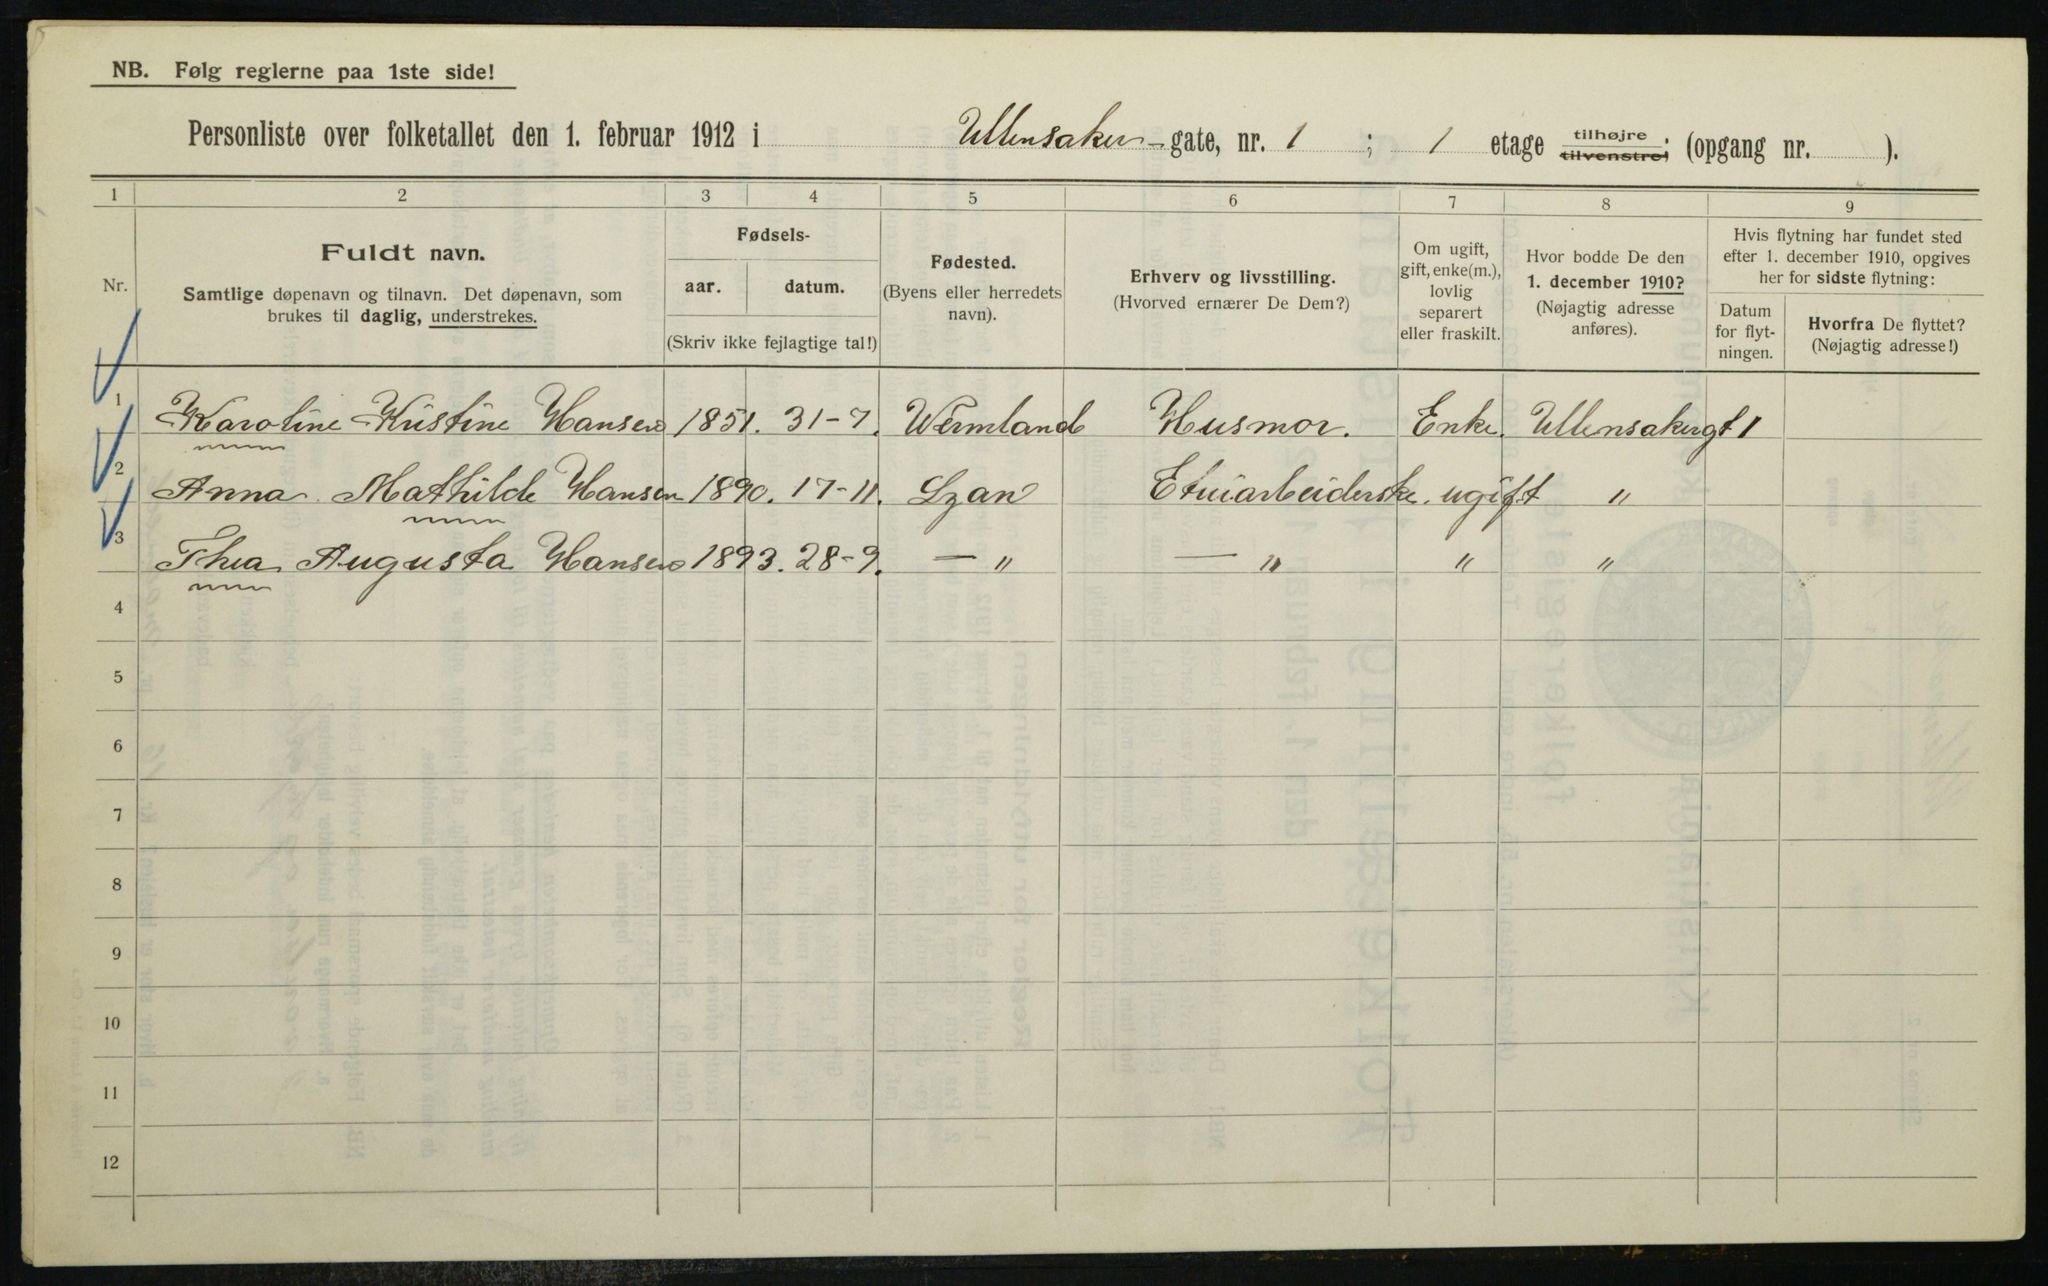 NB. Følg reglerne paa 1ste side!
Personliste over folketallet den 1. februar 1912 i Ullensaker-gate, nr. 1 ; 1 etage tilhøjre tilvenstre; (opgang nr. ).
1 2 3 4 5 6 7 8 9
Nr.
Fuldt navn.
Samtlige døpenavn og tilnavn. Det døpenavn, som
brukes til daglig, understrekes.
Fødsels-
aar. datum.
(Skriv ikke fejlagtige tal!)
Fødested.
(Byens eller herredets
navn).
Erhverv og livsstilling.
(Hvorved ernærer De Dem?)
Om ugift,
gift, enke(m.),
lovlig
separert
eller fraskilt.
Hvor bodde De den
1. december 1910?
(Nøjagtig adresse
anføres).
Hvis flytning har fundet sted
efter 1. december 1910, opgives
her for sidste flytning:
Datum
for flyt-
ningen.
Hvorfra De flyttet?
(Nøjagtig adresse!)
1 Karoline Kristine Hansen 1851. 31-7. Wermland Husmor. Enke. Ullensakergt 1
2 Anna Mathilde Hansen 1890. 17-11. Etuiarbeiderske. ugift "
3 Thea Augusta Hansen 1893. 28-9. — " — " " "
4
5
6
7
8
9
10
11
12